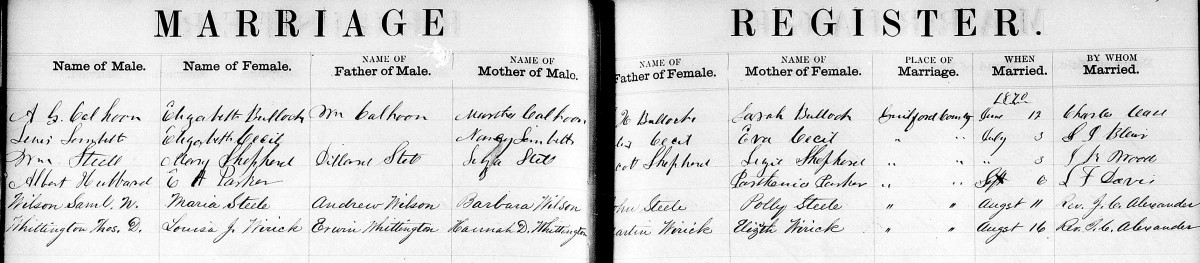 MARRIAGE REGISTER.
Name of Male. Name of Female. NAME OF Father of Male. NAME OF Mother of Male. NAME OF Father of Female. NAME OF Mother of Female. PLACE OF Marriage. WHEN Married. BY WHOM Married.
1872
A G. Calhoon Elizabeth Bullock Wm Calhoon Calhoon Bullock Sarah Bullock Guilford County June 12 Charles
Elizabeth Cecil Nancy Cecil Eva Cecil " " July 3 S J Blair
Wm Steell Mary Shepherd Shepherd Lizzie Shepherd " " " 3 Wood
Albert Hubbard E A Parker Parker " " Sept 6 L F Davis
Wilson Saml. W. Maria Steele Andrew Wilson Barbara Wilson Steele Polly Steele " " Augst 11 Rev. J. C. Alexander
Whittington Thos. D. Louisa J. Wirick Erwin Whittington Hannah D. Whittington Wirick Elizth Wirick " " Augst 16 Rev. J. C. Alexander